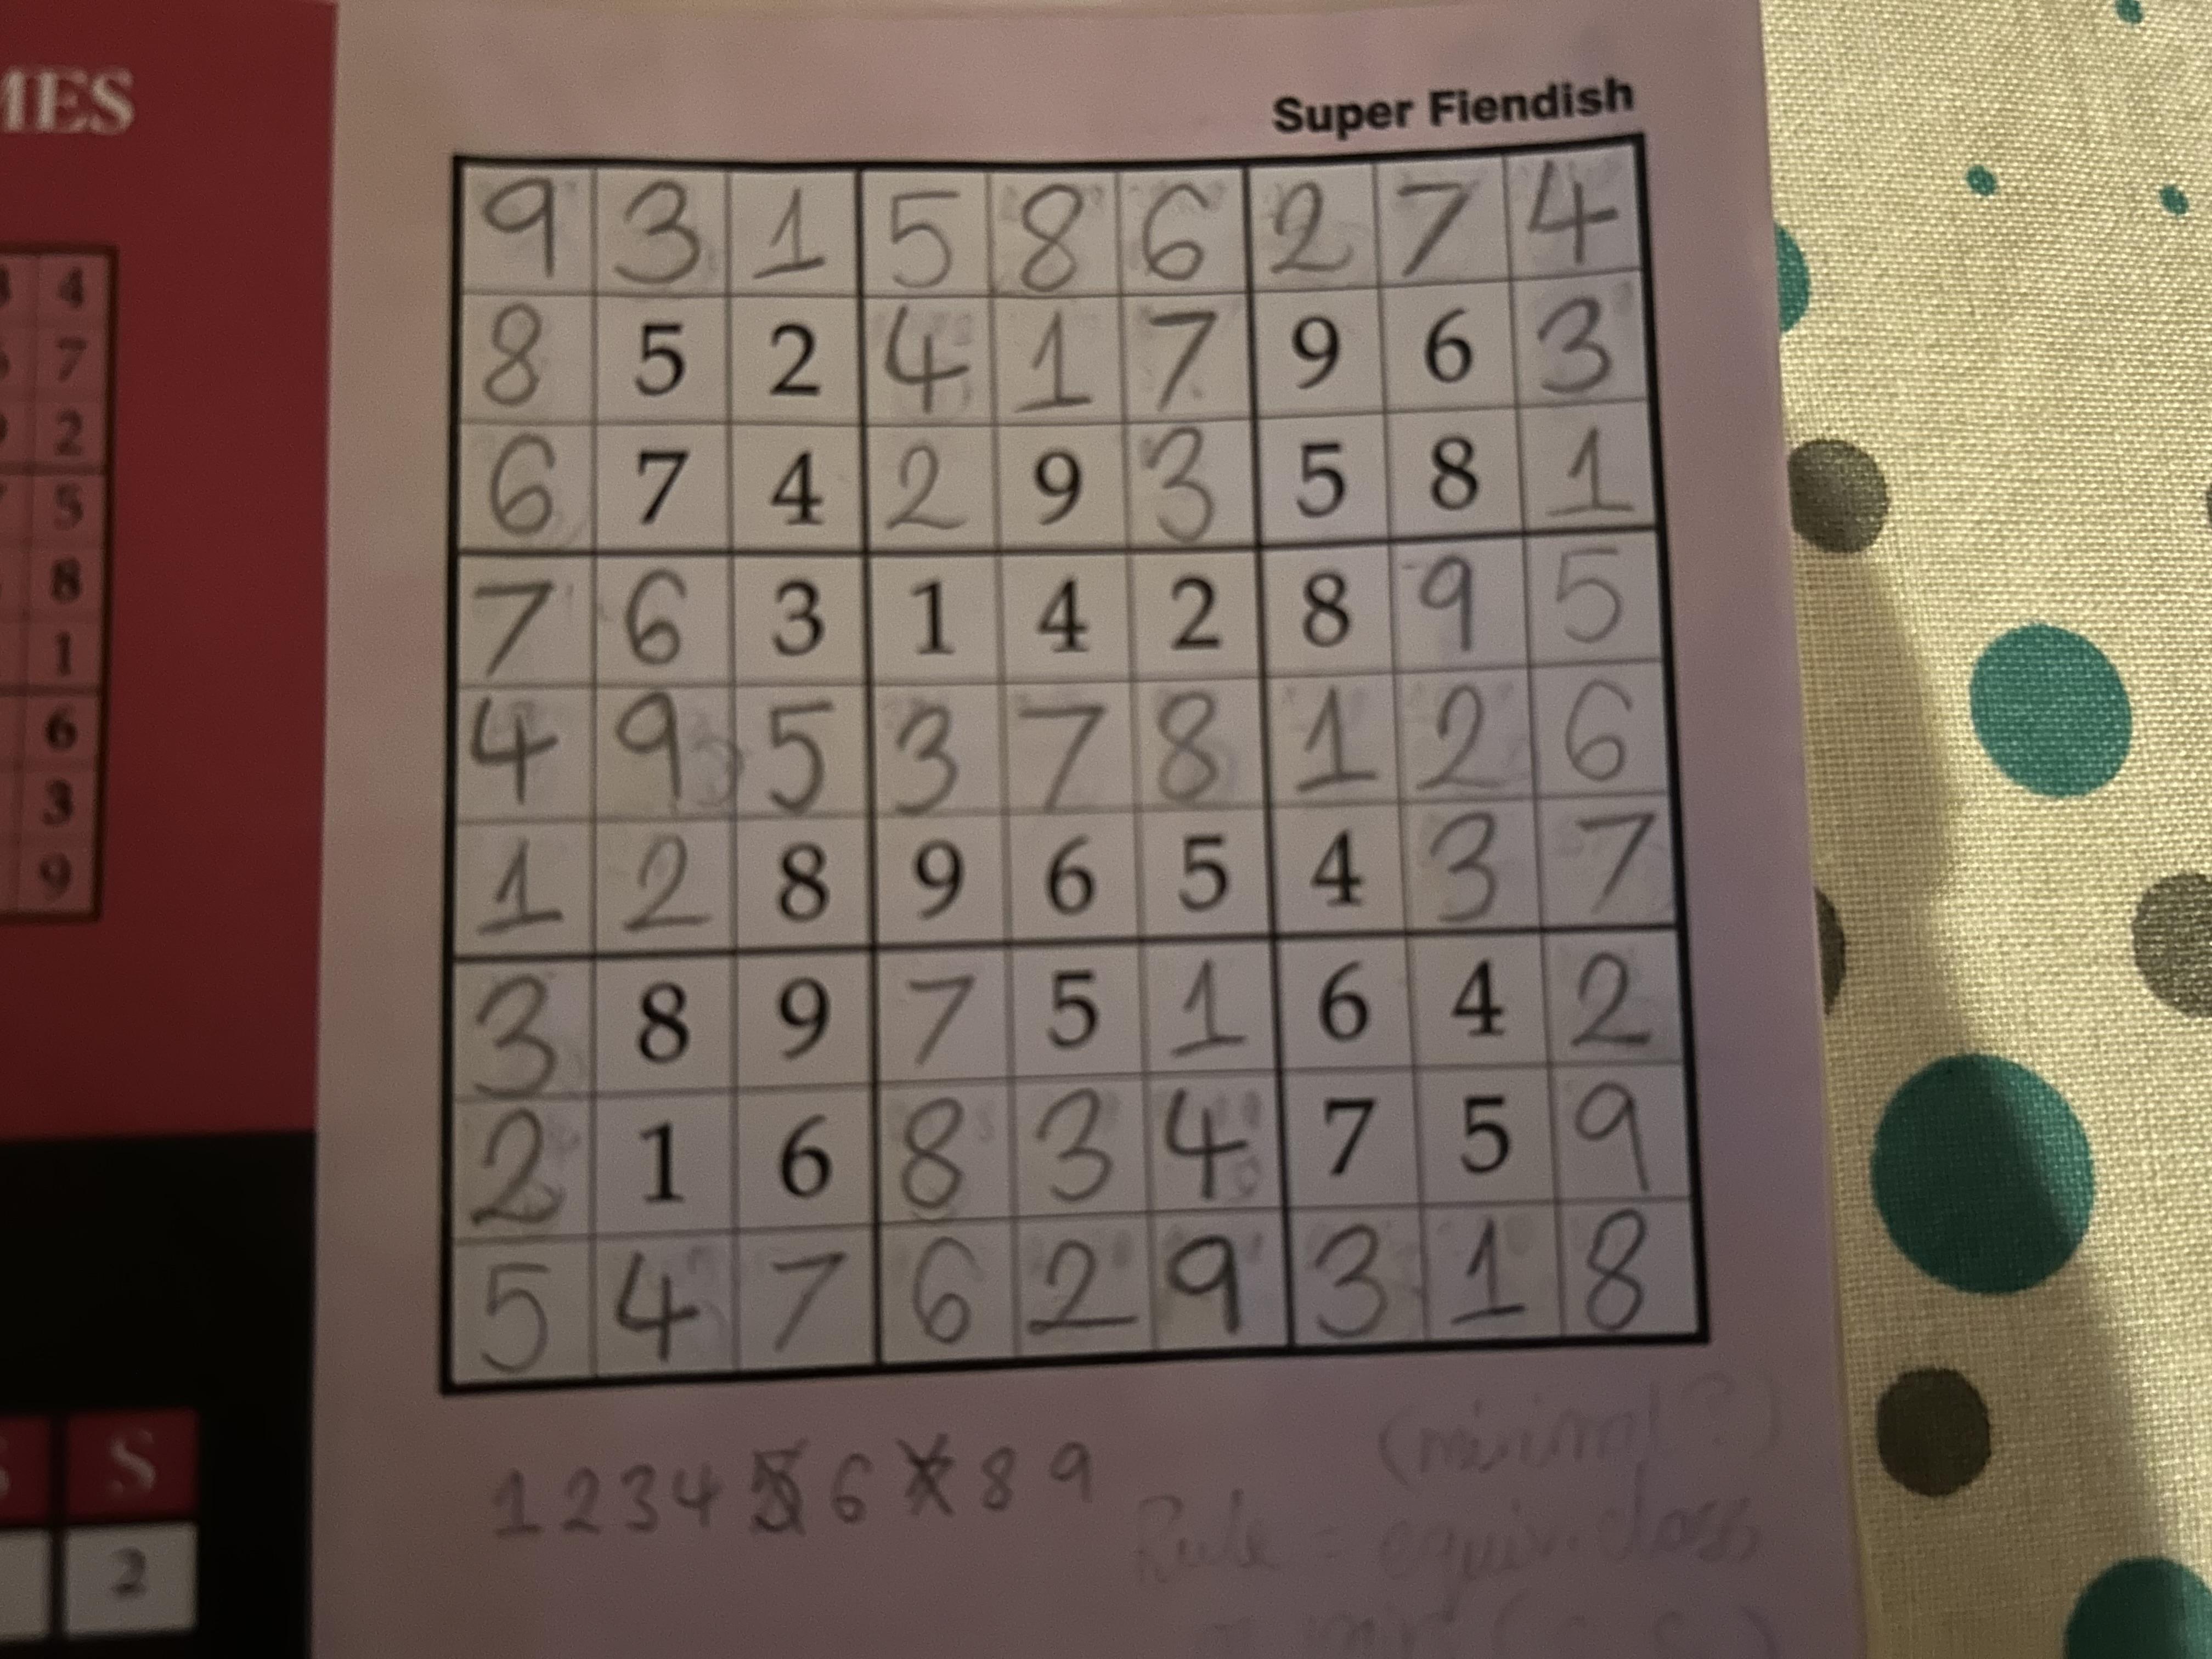 MES
Super Fiendish
9 3 1 5 8 6 2 7 4
8 5 2 4 1 7 9 6 3
6 7 4 2 9 3 5 8 1
7 6 3 1 4 2 8 9 5
4 9 5 3 7 8 1 2 6
1 2 8 9 6 5 4 3 7
3 8 9 7 5 1 6 4 2
2 1 6 8 3 4 7 5 9
5 4 7 6 2 9 3 1 8
1 2 3 4 5 6 8 9
(minimal?)
Rule = equiv. class
4
7
2
5
8
1
6
3
9
S
2